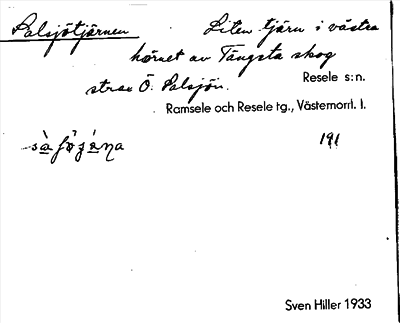 Salsjötjärnen Liten tjärn i västra
hörnet av Tängsta skog
strax Ö. Salsjön.
Resele s:n.
Ramsele och Resele tg., Västernorrl. l.
191
Sven Hiller 1933